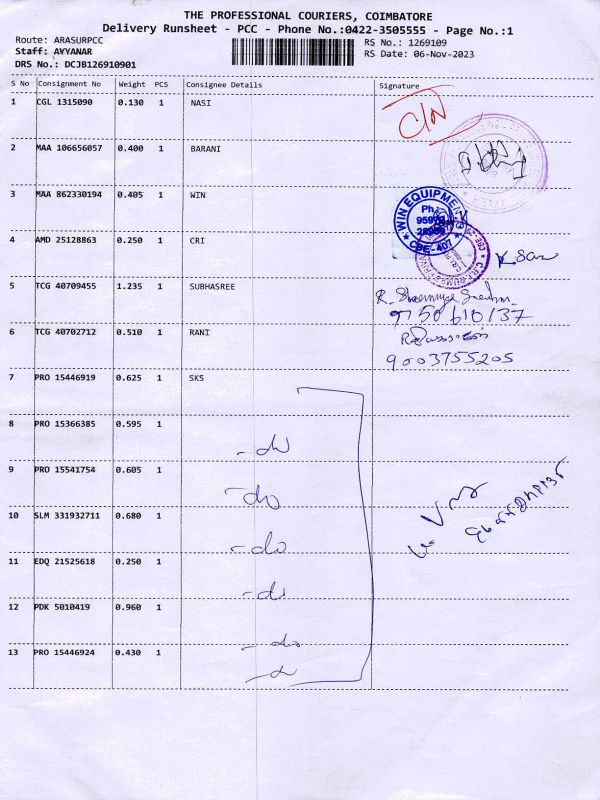 THE PROFESSIONAL COURIERS, COIMBATORE
Delivery Runsheet - PCC - Phone No.:0422-3505555 - Page No.:1
Route: ARASURPCC
RS No.: 1269109
Staff: AYYANAR
RS Date: 06-Nov-2023
DRS No.: DCJB126910901
S No Consignment No Weight PCS Consignee Details Signature
1 CGL 1315090 0.130 1 NASI
2 MAA 106656057 0.400 1 BARANI
3 MAA 862330194 0.405 1 WIN
WIN EQUIPMENTS
Ph:
CBE-407
4 AMD 25128863 0.250 1 CRI
5 TCG 40709455 1.235 1 SUBHASREE
9750610137
6 TCG 40702712 0.510 1 RANI
9003755205
7 PRO 15446919 0.625 1 SKS
8 PRO 15366385 0.595 1
-do
9 PRO 15541754 0.605 1
-do
10 SLM 331932711 0.680 1
-do
11 EDQ 21525618 0.250 1
-do
12 PDK 5010419 0.960 1
-do
13 PRO 15446924 0.430 1